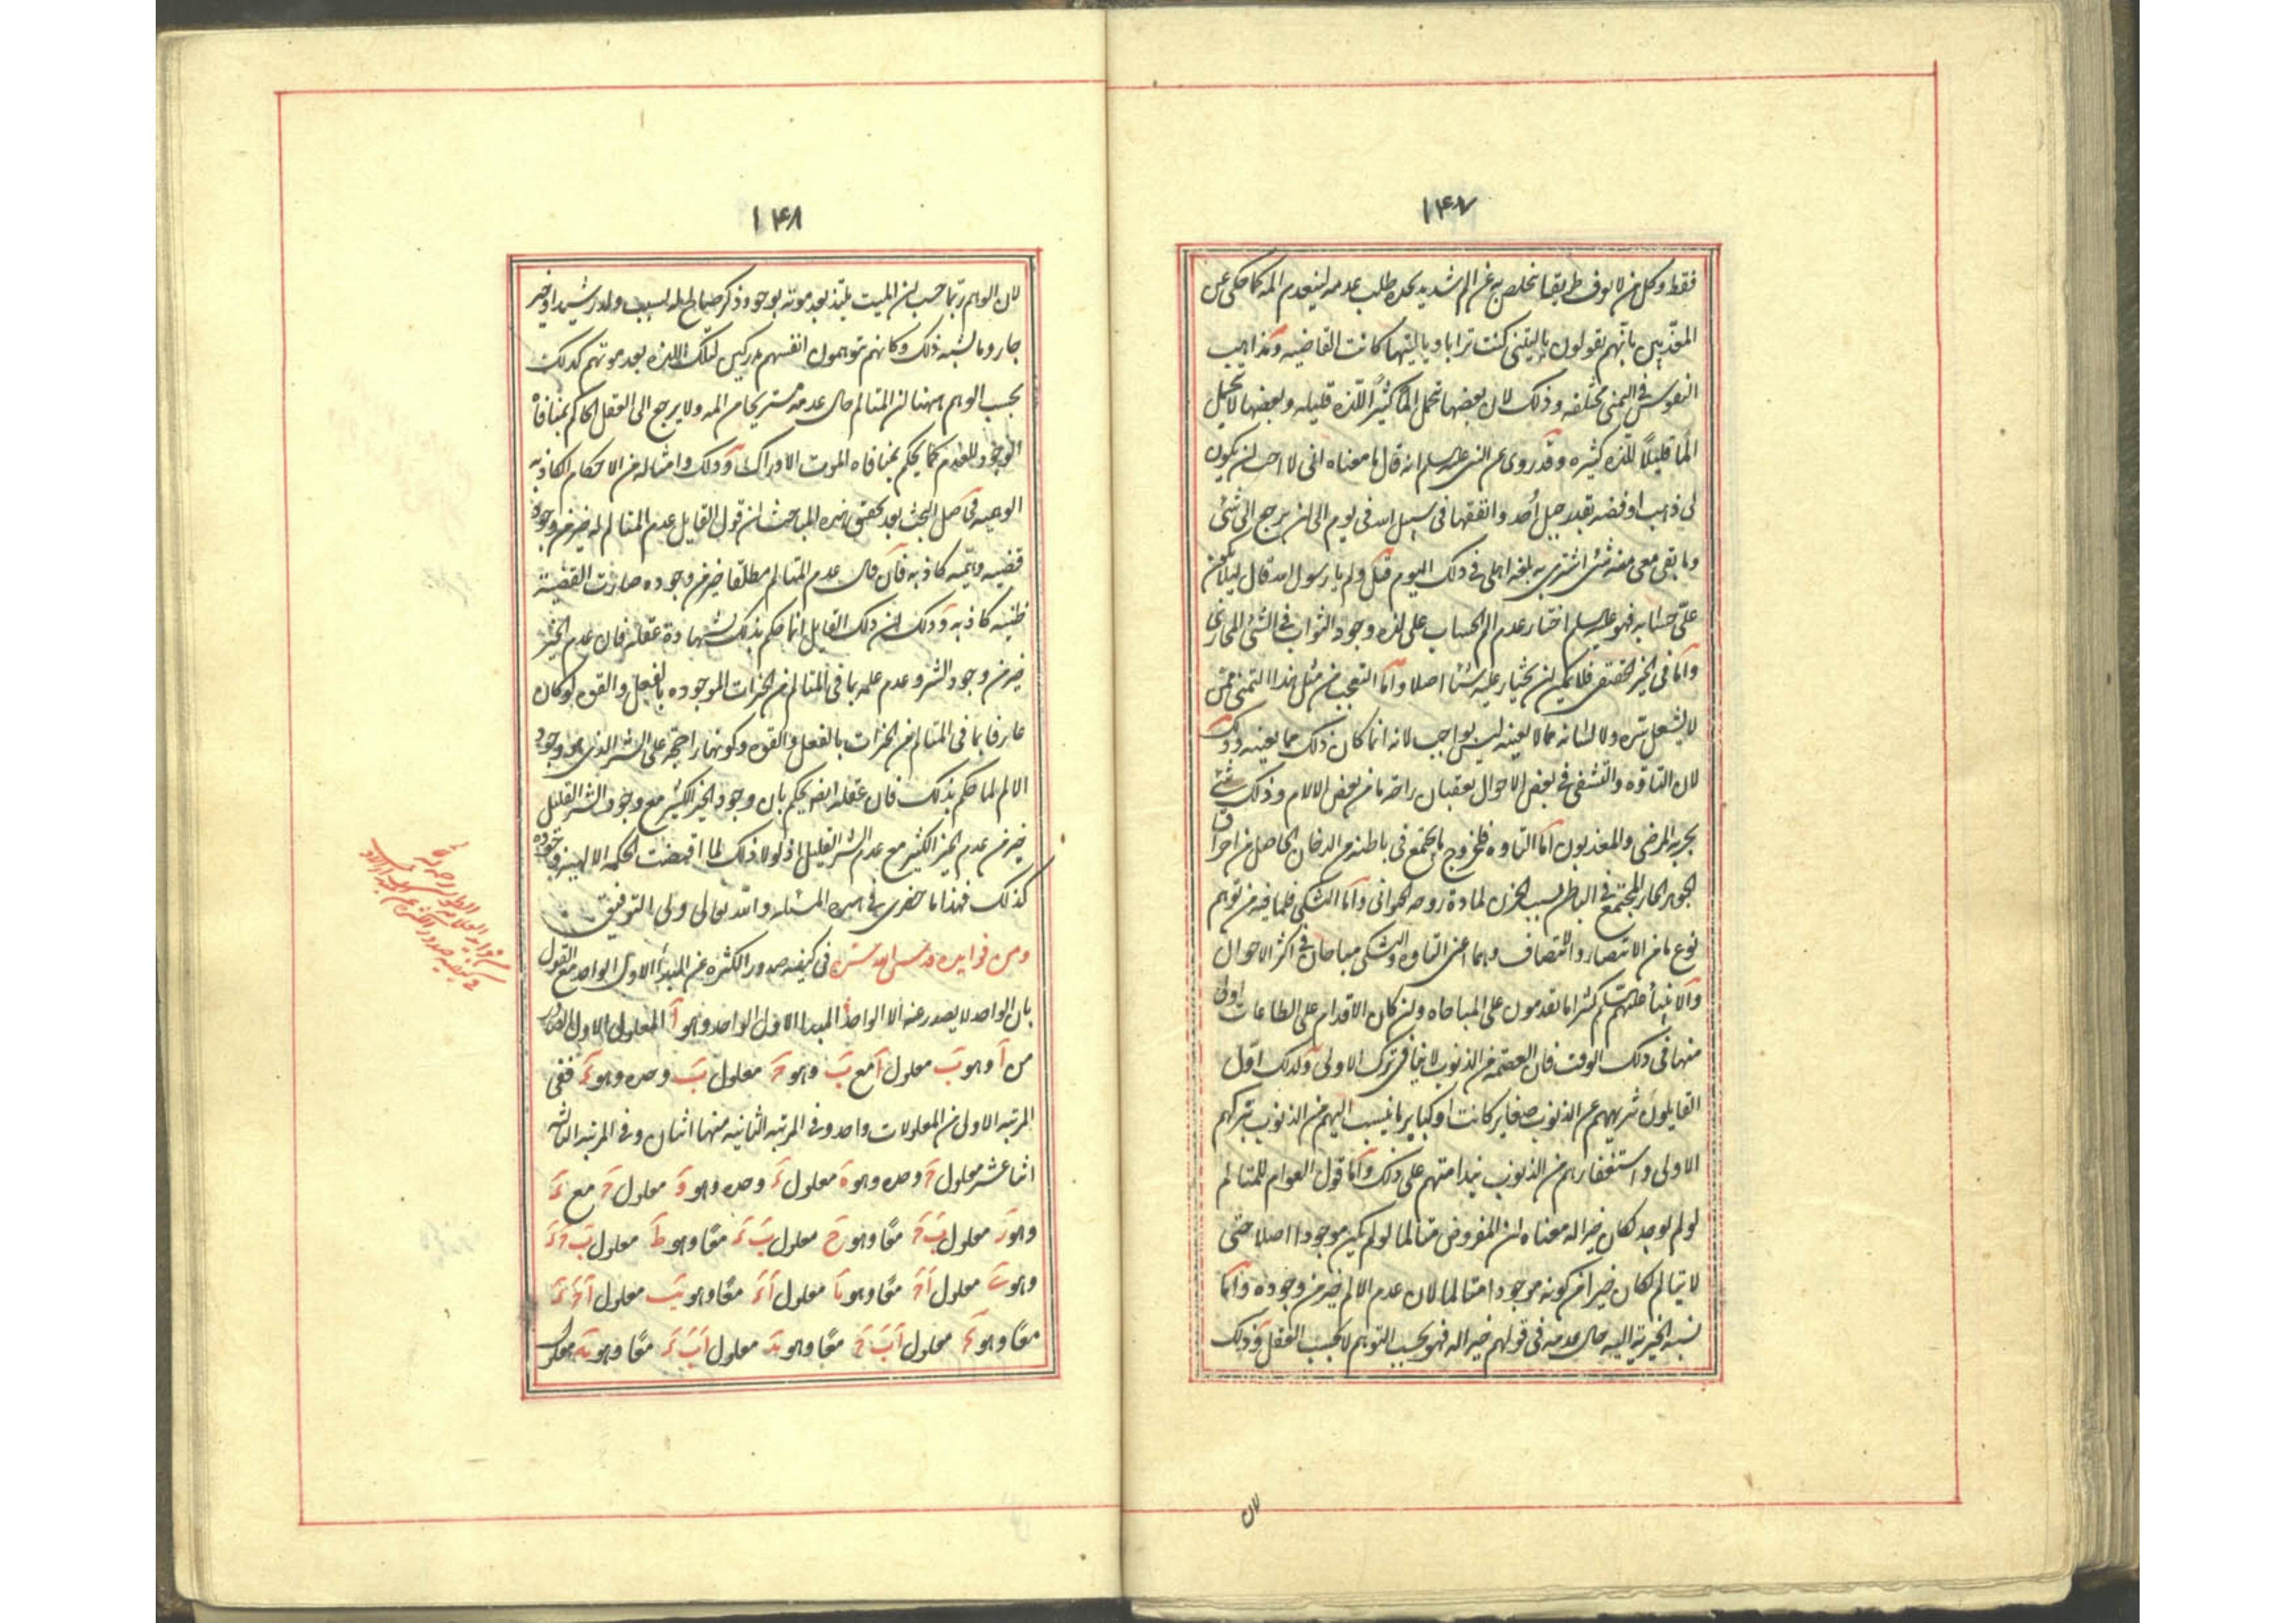 ١٤٧
فقط وكل من لا يعرف طريقا يتخلص به عن الم شديد يجده طلب عدمه لينعدم المه كما حكى عن
المعذبين بانهم يقولون يا ليتنى كنت ترابا ويا ليتها كانت القاضيه ومذاهب
النفوس فى التمنى مختلفه وذلك لان بعضها تحمل الما كثيرا للذه قليله وبعضها لا تحمل
الما قليلا للذه كثيره وقد روى عن النبى عليه السلم انه قال ما معناه انى لا احب ان يكون
لى ذهب او فضه بقدر جبل أحد وانفقها فى سبيل الله فى يوم الى ان يرجع الى شئ
وما بقى معى منه شئ اشترى به بلغه اهلى فى ذلك اليوم قيل ولم يا رسول الله قال ليلا يكون
على حسابه فهو عليه السلم اختار عدم الم الحساب على لذه وجود الثواب فى الشئ المجازى
واما فى الخير الحقيقى فلا يمكن ان يختار عليه شيئا اصلا واما التعجب من مثل هذا التمنى ممن
لا يشتغل سره ولا لسانه بما لا يعنيه ليس بواجب لانه انما كان ذلك مما يعنيه وذلك
لان التاوه والتشفى فى بعض الاحوال يعقبان راحه ما من بعض الالام وذلك شئ
يجربه المرضى والمعذبون اما التاوه فلخروج ما يجتمع فى باطنه من الدخان الحاصل من احراق
الجوهر الحار المجتمع فى الباطن بسبب الحزن لماده روحه الحيوانى واما التشكى فلما فيه من توهم
نوع ما من الانتصار والانتصاف وهما اعنى التاوه والتشكى مباحان فى اكثر الاحوال
والانبياء عليهم السلم كثيرا ما يقدمون على المباحاه وان كان الاقدام على الطاعات اولى
منها فى ذلك الوقت فان العصمه من الذنوب لا ينافى ترك الاولى وكذلك اول
القايلون بتنزيههم عن الذنوب صغاير كانت او كباير ما ينسب اليهم من الذنوب بتركهم
الاولى واستغفارهم من الذنوب بندامتهم على ذلك واما قول العوام للمتالم
لو لم يوجد لكان خيرا له معناه ان المفروض متالما لو لم يكن موجودا اصلا حتى
لا يتالم لكان خيرا من كونه موجودا متالما لان عدم الالم خير من وجوده واما
نسبه الخيريه اليه حال عدمه فى قولهم خيرا له فهو بحسب التوهم لا بحسب العقل وذلك
١٤٨
لان الواهم ربما حسب ان الميت يلتذ بعد موته بوجود ذكر صالح له بسبب ولد رشيد او خير
جار وما يشبه ذلك وكانهم يتوهمون انفسهم مدركين لتلك اللذه بعد موتهم كذلك
بحسب الوهم ههنا ان المتالم حال عدمه مستريحا من المه ولا يرجع الى العقل الحاكم بمنافاة
الوجود للعدم كما يحكم بمنافاه الموت الادراك وذلك وامثاله من الاحكام الكاذبه
الوهميه فحاصل البحث بعد تحقيق هذه المباحث ان قول القايل عدم المتالم له خير من وجوده
قضيه وهميه كاذبه فان قال عدم المتالم مطلقا خير من وجوده صارت القضية
ظنيه كاذبه وذلك ان ذلك القايل انما حكم بذلك بشهادة عقله فان عدم الخير
خير من وجود الشر وعدم علمه بما فى المتالم من الخيرات الموجوده بالفعل والقوه لو كان
عارفا بما فى المتالم من الخيرات بالفعل والقوه وكونها راجحة على الشر الذى هو وجود
الالم لما حكم بذلك فان عقله ايضا يحكم بان وجود الخير الكثير مع وجود الشر القليل
خير من عدم الخير الكثير مع عدم الشر القليل اذ لولا ذلك لما اقتضت الحكمه الالهيه وجوده
كذلك فهذا ما حضرنى فى هذه المسئله والله تعالى ولى التوفيق
ومن فوايده قدس الله سره فى كيفيه صدور الكثره عن المبدأ الاول الواحد مع القول
بان الواحد لا يصدر عنه الا الواحد المبدا الاول الواحد وهو آ المعلول الاول الصادر
من آ وهو ب معلول آ مع ب وهو ج معلول ب وحده وهو د ففى
المرتبه الاولى من المعلولات واحد وفى المرتبه الثانيه منها اثنان وفى المرتبه الثالثه
اثنا عشر معلول ج وحده وهو ه معلول د وحده وهو و معلول ج مع د
وهو ز معلول ب ج معا وهو ح معلول ب د معا وهو ط معلول ب ج د
وهو ى معلول ا ج معا وهو يا معلول ا د معا وهو يب معلول ا ج د
معا وهو يج معلول ا ب ج معا وهو يد معلول ا ب د معا وهو يه معلول